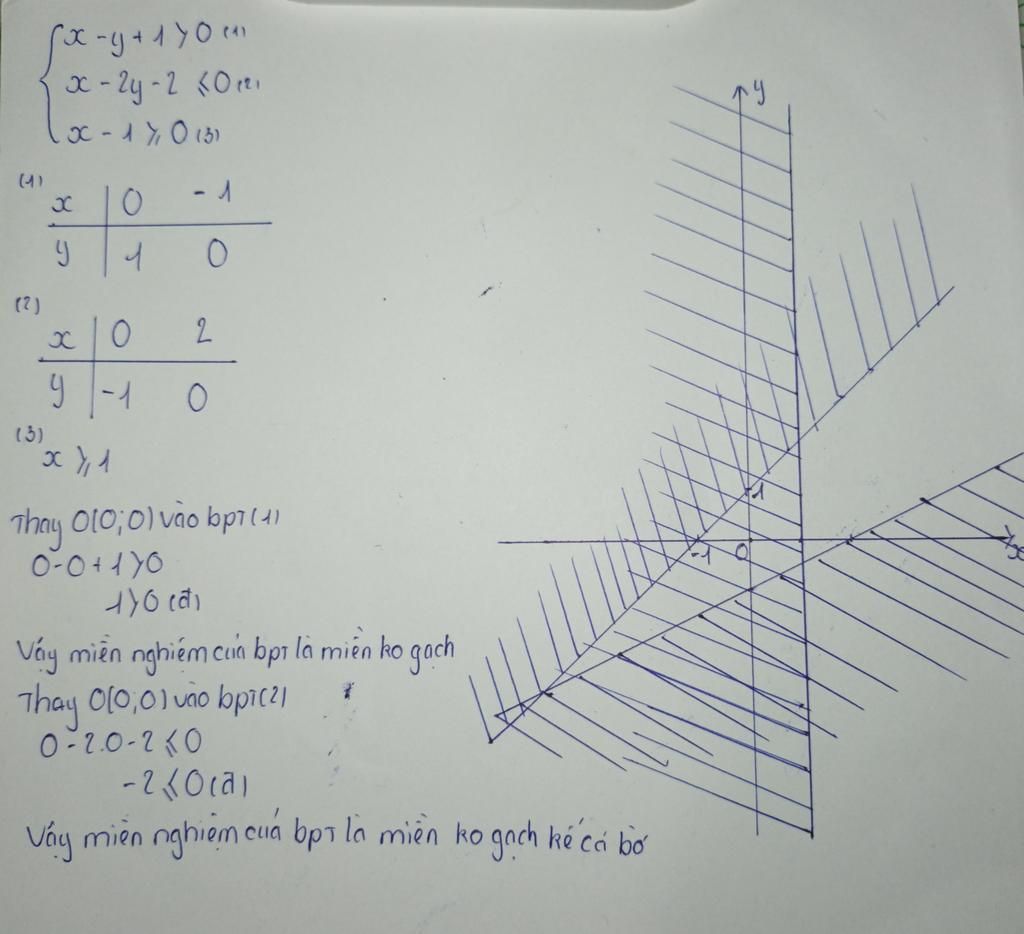 x - y + 1 > 0 (1)
x - 2y - 2 ⩽ 0 (2)
x - 1 ⩾ 0 (3)
(1)
x | 0 -1
y | 1 0
(2)
x | 0 2
y | -1 0
(3)
x ⩾ 1
Thay O(0;0) vào bpT(1)
0-0+1>0
1>0 (đ)
Vậy miền nghiệm của bpT là miền ko gạch
Thay O(0;0) vào bpT(2)
0-2.0-2 ⩽ 0
-2 ⩽ 0 (đ)
Vậy miền nghiệm của bpT là miền ko gạch kể cả bờ
y
-1
-1 0 x